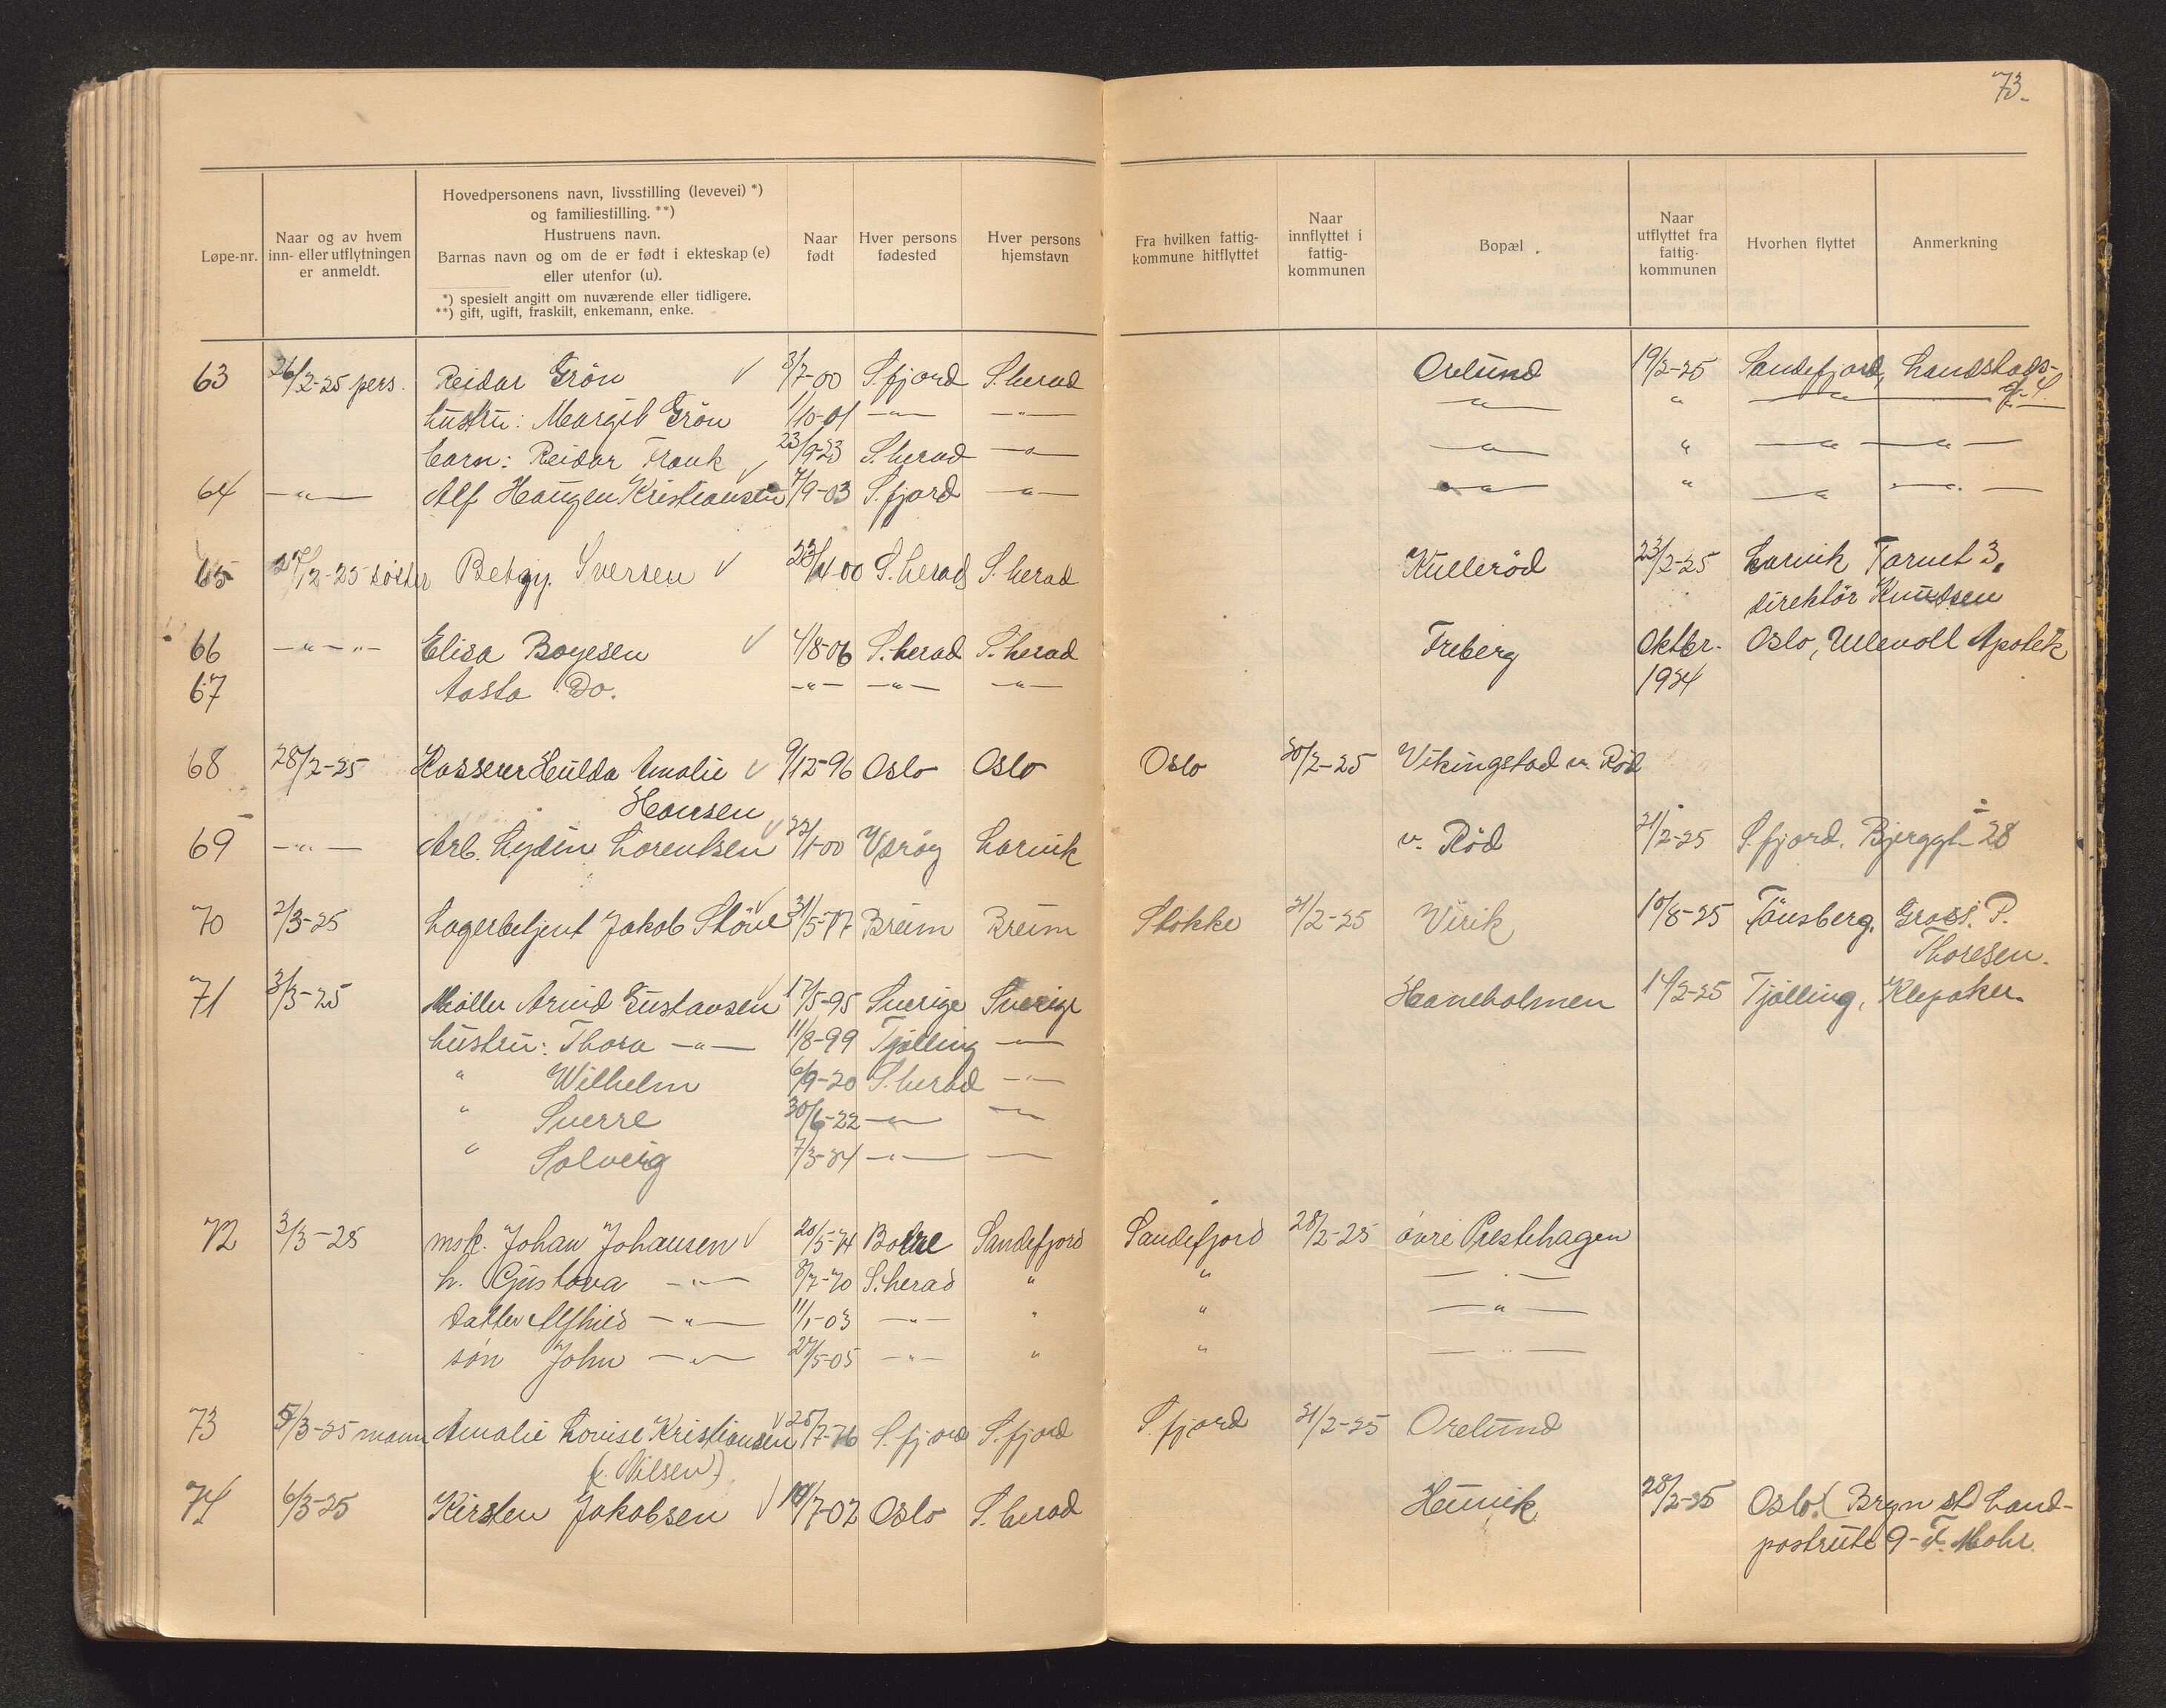 73.
Løpe-nr.
Naar og av hvem
inn- eller utflytningen
er anmeldt.
Hovedpersonens navn, livsstilling (levevei) *)
og familiestilling. **)
Hustruens navn.
Barnas navn og om de er født i ekteskap (e)
eller utenfor (u).
*) spesielt angitt om nuværende eller tidligere.
**) gift, ugift, fraskilt, enkemann, enke.
Naar
født
Hver persons
fødested
Hver persons
hjemstavn
Fra hvilken fattig-
kommune hitflyttet
Naar
innflyttet i
fattig-
kommunen
Bopæl
Naar
utflyttet fra
fattig-
kommunen
Hvorhen flyttet
Anmerkning
63 26/2-25 pers. Reidar Grön √ 3/7-00 S.fjord S.herad Orelund 19/2-25 Sandefjord, Landstads-
hustru: Margit Grön 1/10-01 —"— —"— —"— " —"— g. 4
barn: Reidar Frank 23/9-23 S.herad —"— —"— " —"— —"—
64 —"— Alf Haugen Kristiansen √ 7/9-03 S.fjord —"— —"— " —"— —"—
65 27/2-25 söster Betzy Iversen √ 23/4-00 S.herad S.herad Kulleröd 23/2-25 Larvik Torvet 3,
direktör Knudsen
66 —"—"— Elisa Boyesen √ 4/8-06 S.herad S.herad Freberg Oktbr. Oslo, Ullevoll Apotek
67 Aasta Do. —"— —"— —"— 1924
68 28/2-25 Kasserer Hulda Amalie √ 9/12-96 Oslo Oslo Oslo 20/2-25 Vikingstad v. Röd
Hansen
69 —"— Arb. Lydin Lorentsen √ 22/1-00 Værøy Larvik v. Röd 21/2-25 S.fjord. Bjerggt. 28
70 2/3-25 Lagerbetjent Jakob Stöve √ 31/5-87 Breim Breim Stokke 21/2-25 Virik 10/8-25 Tönsberg, Gross. P.
Thoresen.
71 3/3-25 Möller Arvid Gustavsen √ 17/5-95 Sverige Sverige Haneholmen 14/2-25 Tjölling, Klepaker.
hustru: Thora —"— 11/8-99 Tjölling —"—
" Wilhelm 6/9-20 S.herad —"—
" Sverre 30/6-22 —"— —"—
" Solveig 7/3-24 —"— —
72 3/3-25 msk. Johan Johansen √ 20/5-74 Borre Sandefjord Sandefjord 28/2-25 övre Prestehagen
h. Gustava —"— 8/7-70 S.herad " " —"—
datter Alfhild —"— 11/1-03 —"— " " —"—
sön John —"— 27/5-05 —"— " " —"—
73 5/3-25 mann Amalie Lovise Kristiansen √ 25/7-76 S.fjord S.fjord S.fjord 21/2-25 Orelund
(f. Nilsen)
74 6/3-25 Kirsten Jakobsen √ 19/7-02 Oslo S.herad Heimvik 28/2-25 Oslo. (Bryn st) Land-
postrute 9 - F. Mohr.